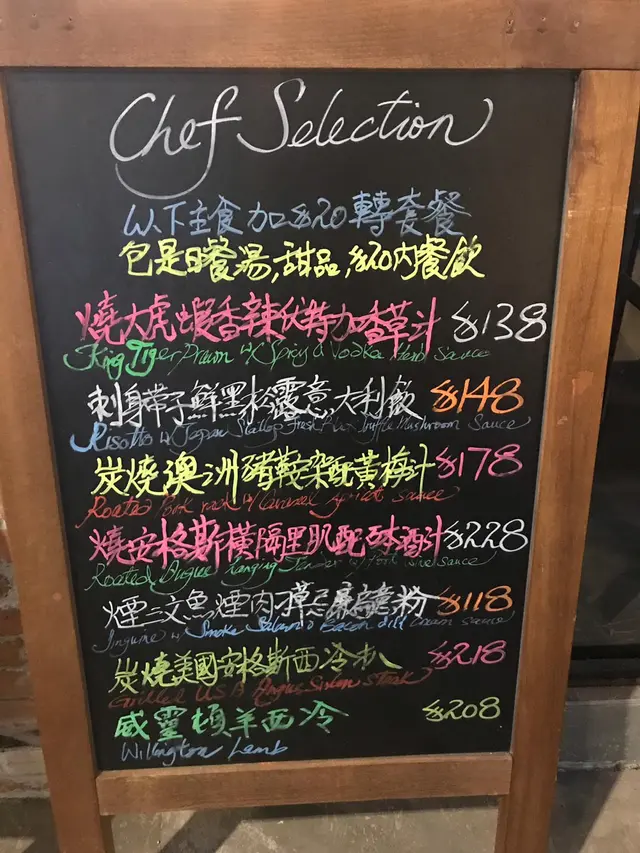 Chef Selection
以下主食加$20轉套餐
包是日餐湯,甜品,$20內餐飲
燒大虎蝦香辣伏特加香草汁 $138
King Tiger Prawn w/ Spicy & Vodka Herb Sauce
刺身帶子鮮黑松露意大利飯 $148
Risotto w/ Japan Scallop Fresh Black Truffle Mushroom Sauce
炭燒澳洲豬鞍架配黃梅汁 $178
Roate Pork rack w/ Caramel Apricot Sauce
燒安格斯橫隔里肌配砵酒汁 $228
Roated Angus Hanging Tender w/ Port Wine Sauce
煙三文魚煙肉 $118
Linguine w/ Smoke Salmon & Bacon dill Cream Sauce
炭燒美國安格斯西冷扒 $218
Grilled USA Angus Sirloin Steak
威靈頓羊西冷 $208
Willington Lamb